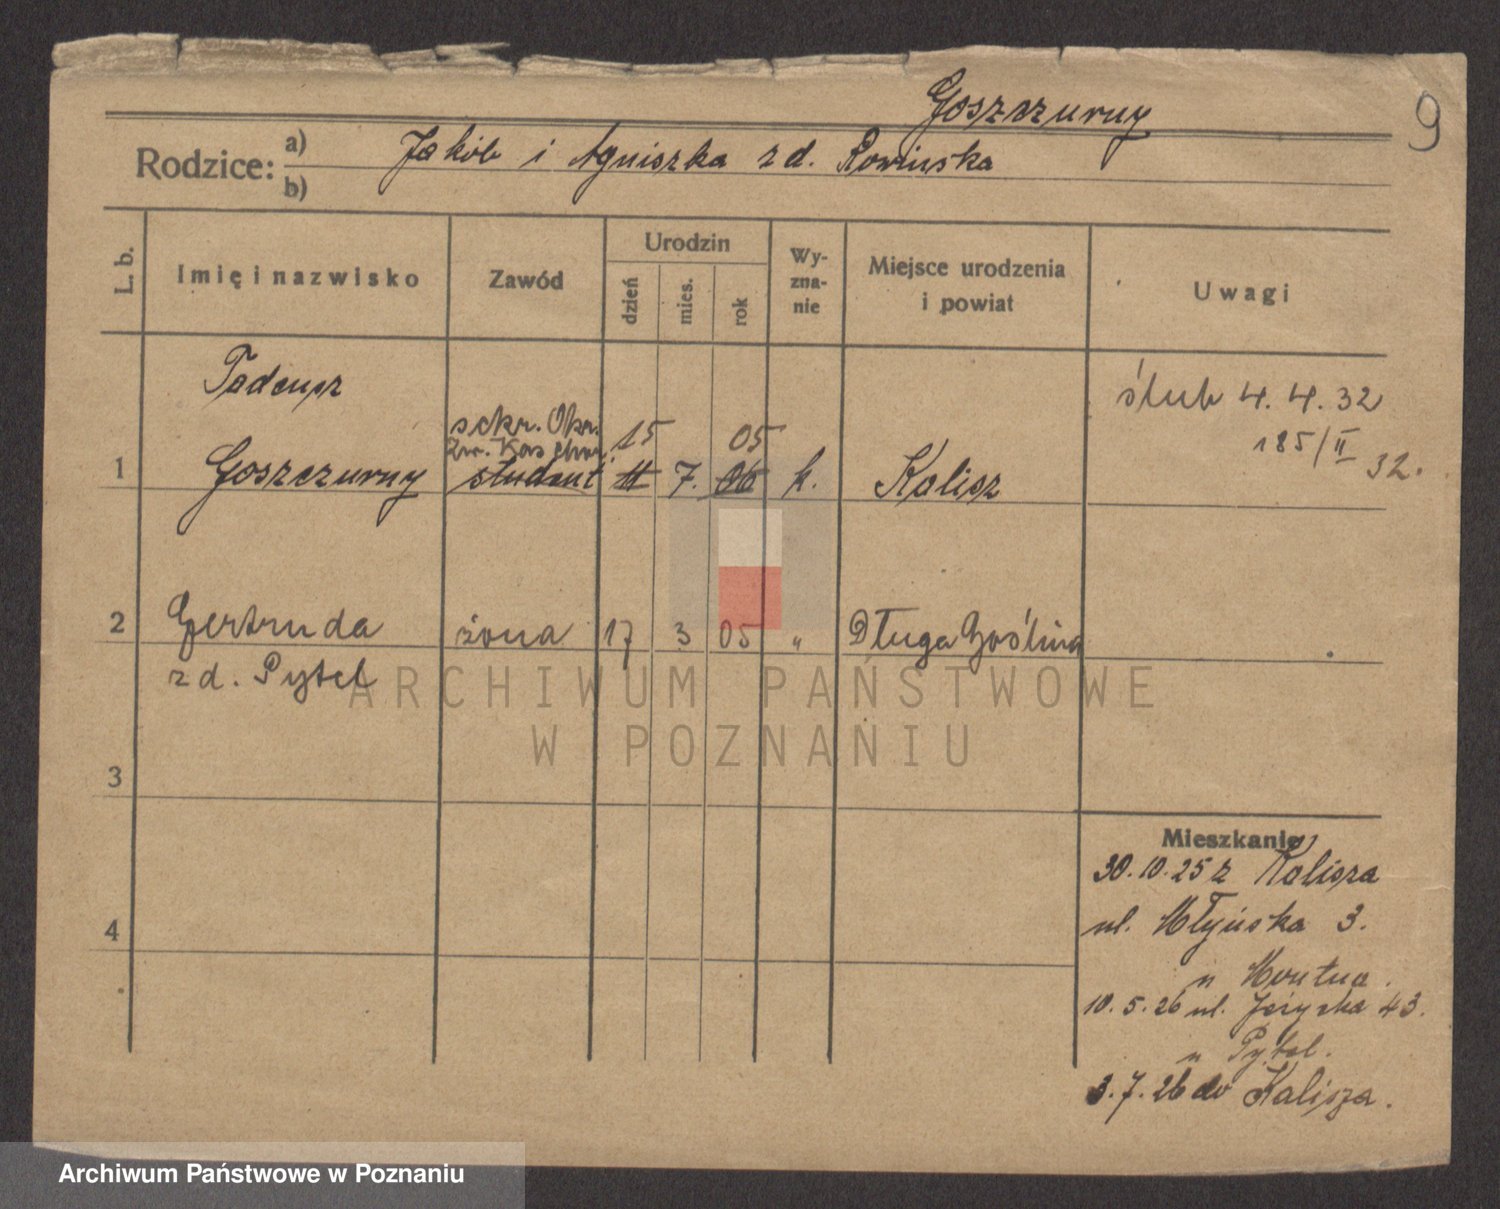 Goszczurny
9
Rodzice: a) Jakób i Agnieszka zd. Rowińska
b)
L. b.
Imię i nazwisko
Zawód
Urodzin
dzień
mies.
rok
Wy-
zna-
nie
Miejsce urodzenia
i powiat
Uwagi
Tadeusz
sekr. Okr.
Zw. Kas Chor.
15
05
ślub 4. 4. 32
185/II
32.
1
Goszczurny
student
11
7.
06
k.
Kalisz
2
Gertruda
żona
17
3
05
"
Długa Goślina
zd. Pytel
ARCHIWUM PAŃSTWOWE
W POZNANIU
3
4
Mieszkanie
30. 10. 25 z Kalisza
ul. Młyńska 3.
u
10. 5. 26 ul. 43.
u Pytel.
3. 7. 26 do Kalisza.
Archiwum Państwowe w Poznaniu